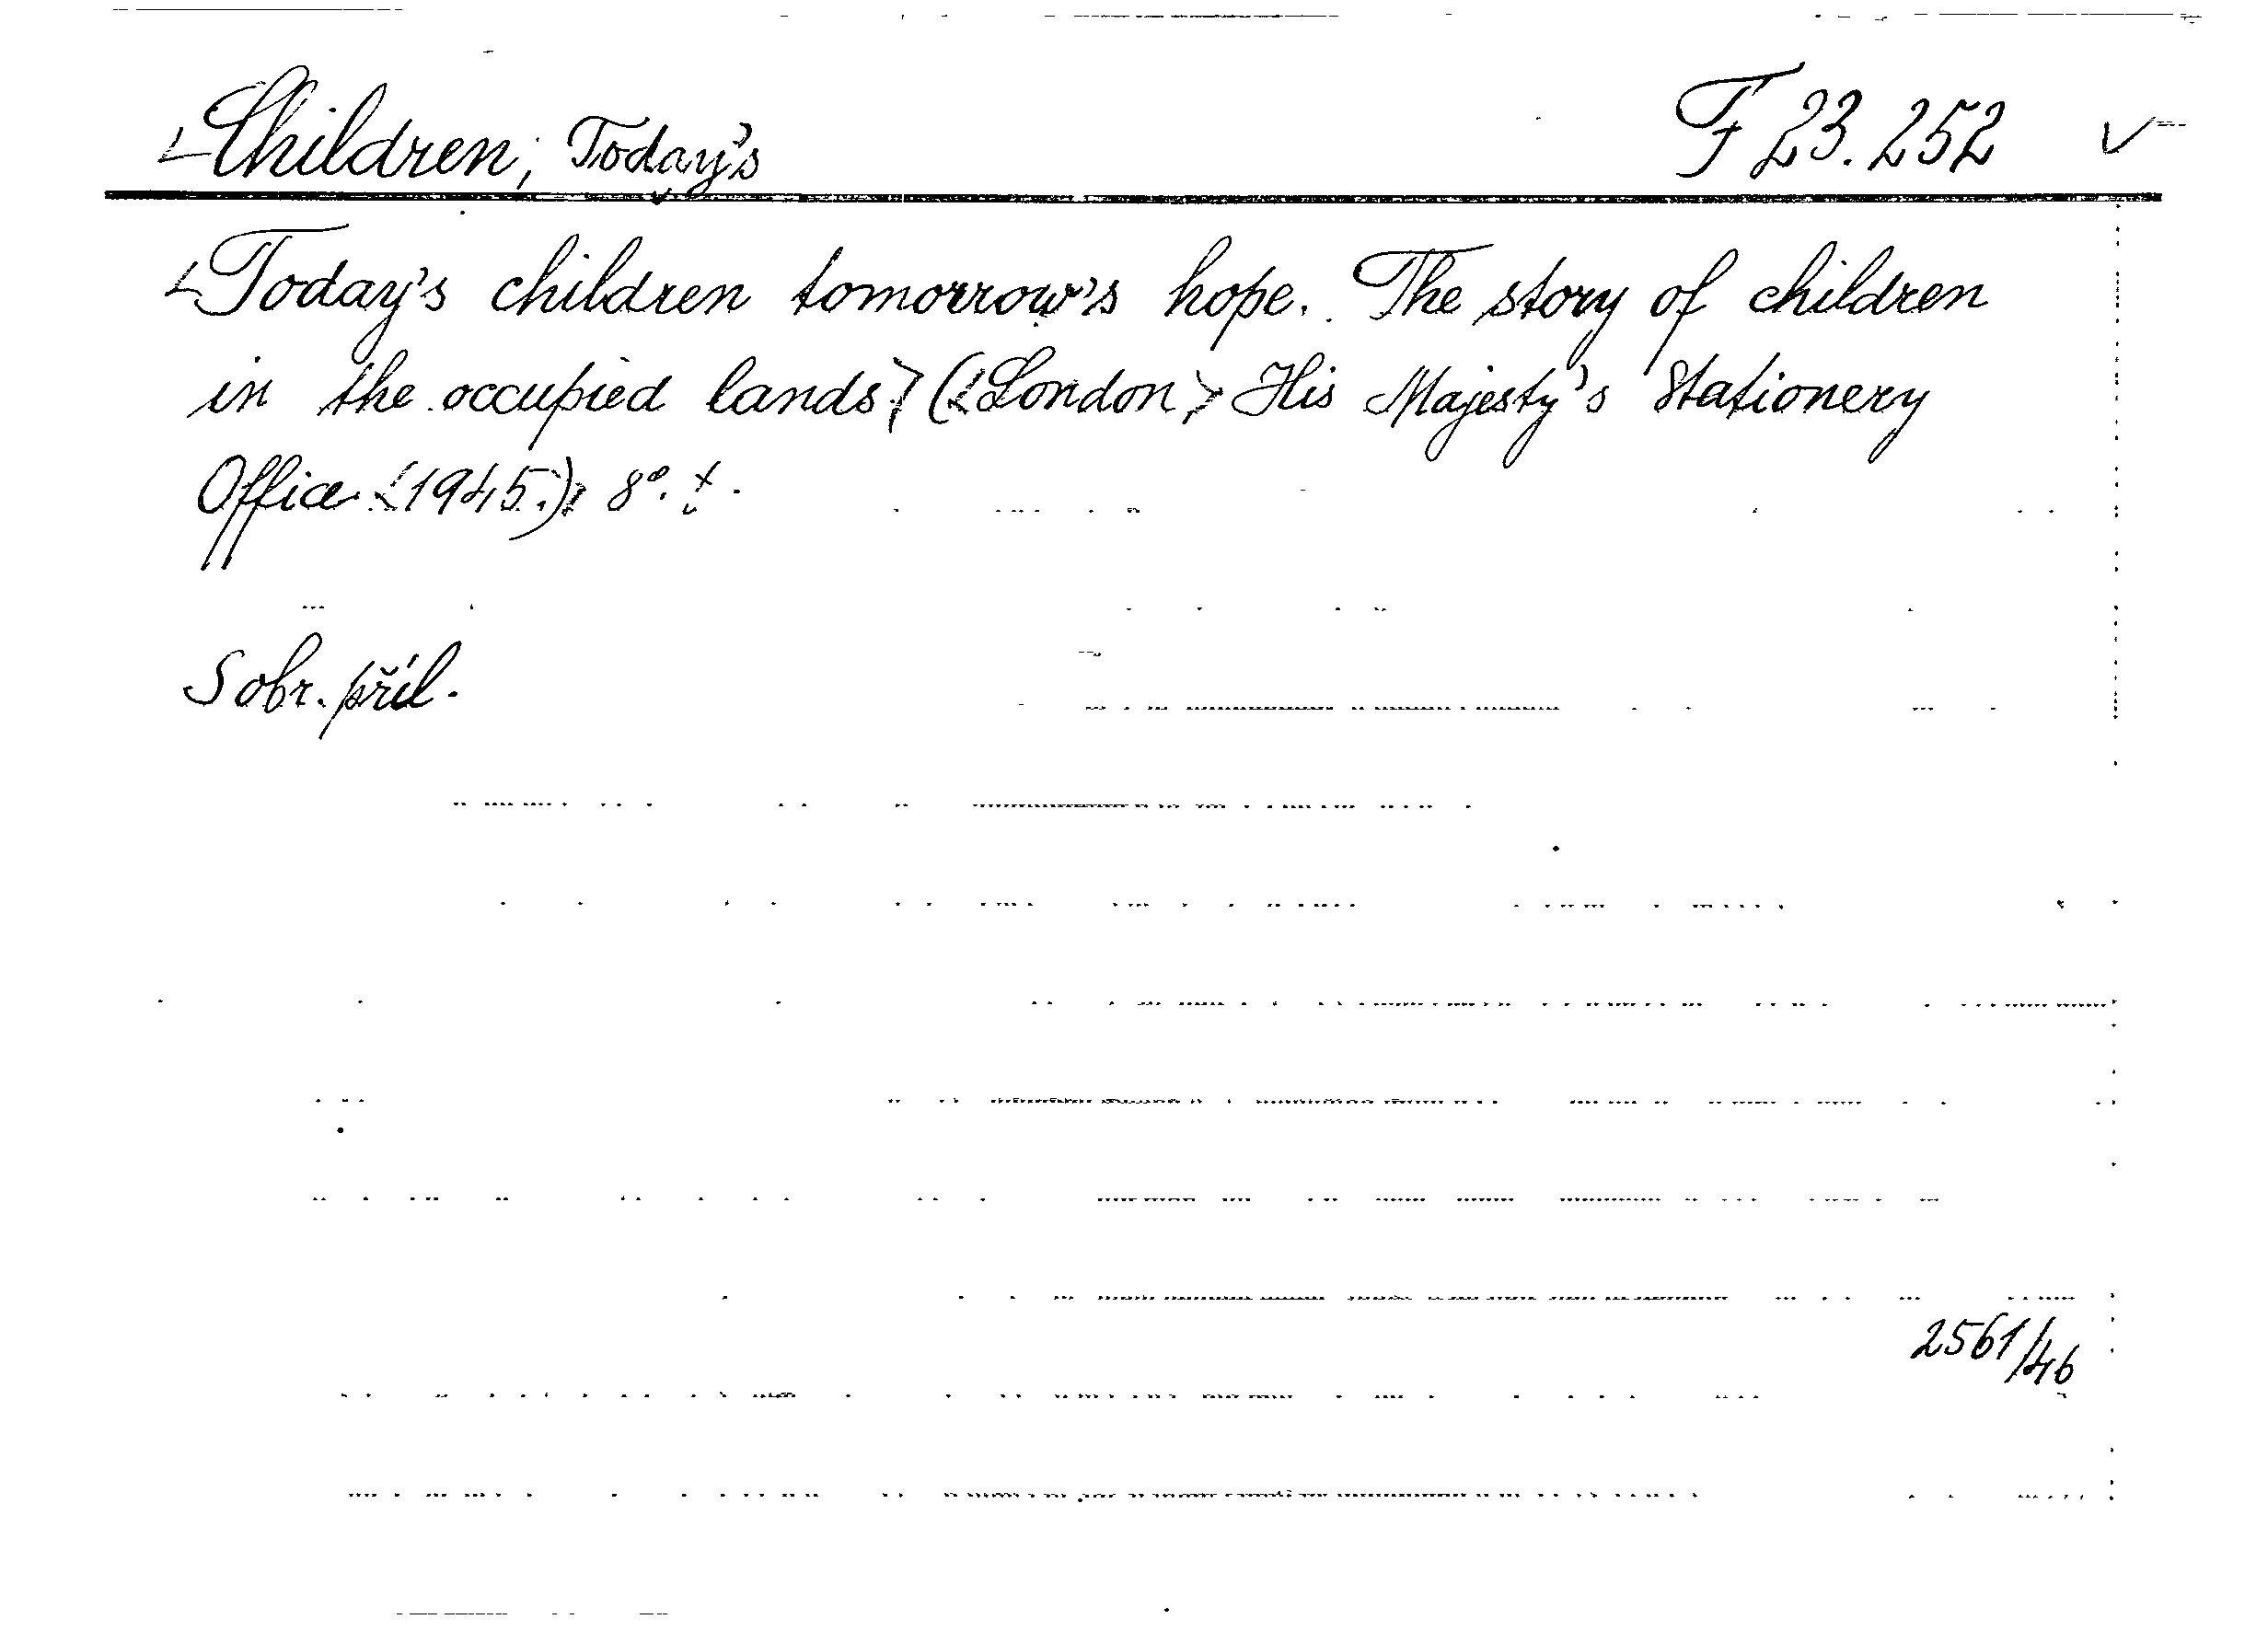 Children, Today's F 23.252 ✓
Today's children tomorrow's hope. The story of children
in the occupied lands. (London, His Majesty's Stationery
Office. 1945.) 8°. +.
S obr. příl.
2561/46